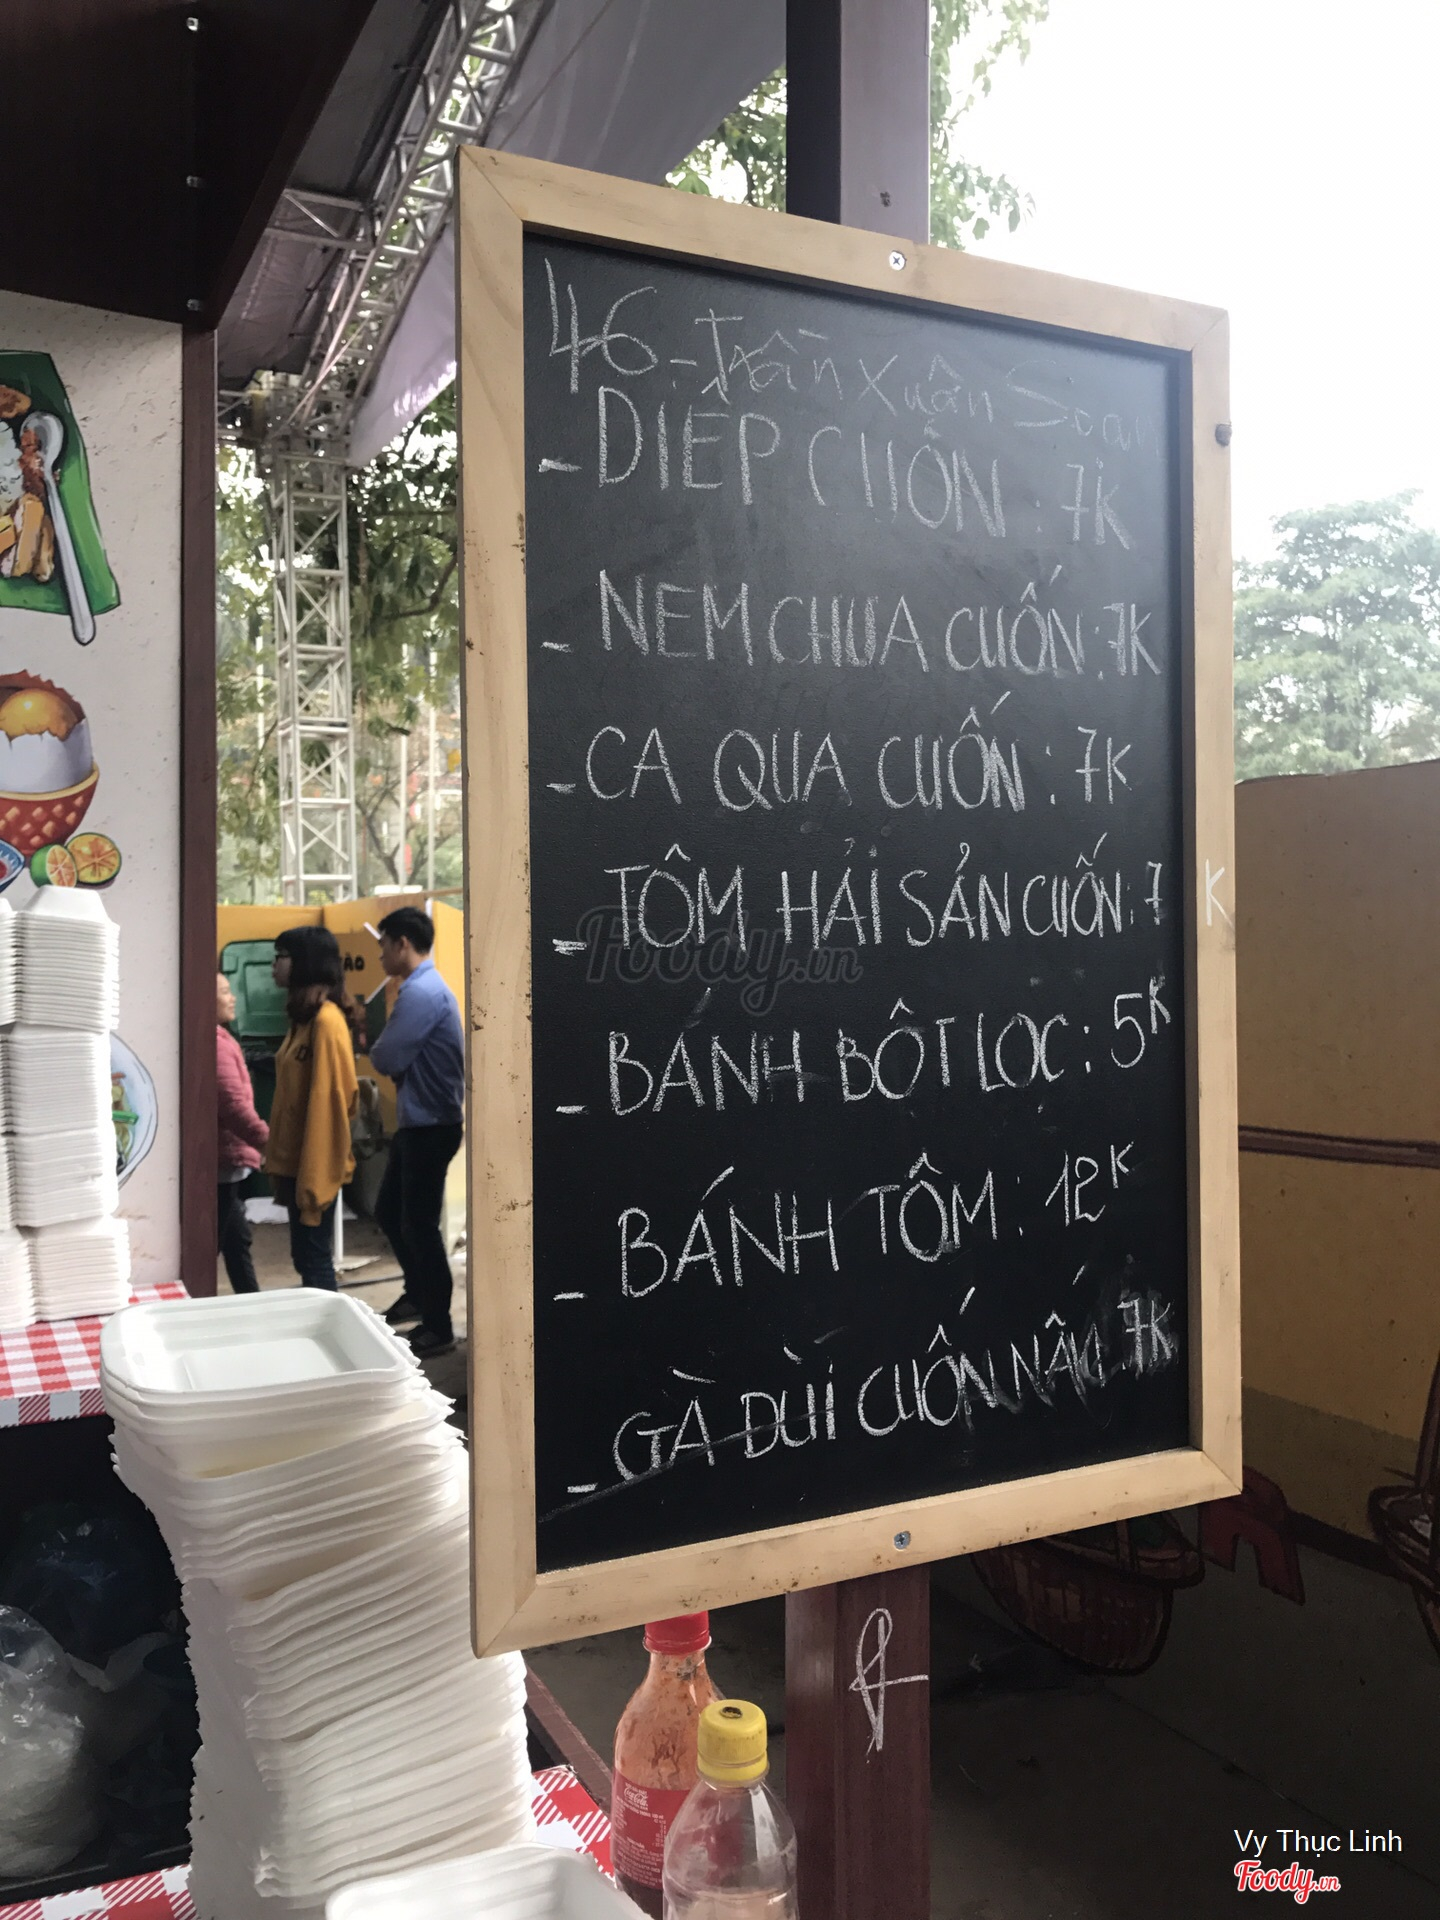 46 - Trần Xuân Soạn
- DIẾP CUỐN : 7K
- NEM CHUA CUỐN : 7K
- CA QUA CUỐN : 7K
- TÔM HẢI SẢN CUỐN : 7K
- BÁNH BỘT LỌC : 5K
- BÁNH TÔM : 12K
- GÀ DÙI CUỐN NẤM 7K
Foody.vn
Coca-Cola
Vy Thục Linh
Foody.vn